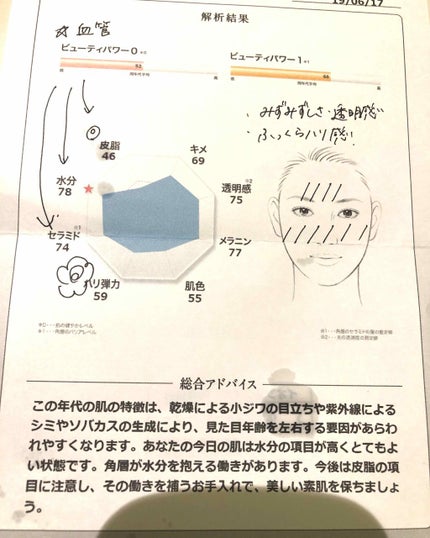 19/06/17
解析結果
☆血管
ビューティパワー0
52
同年代平均
ビューティパワー1
66
同年代平均
・みずみずしさ・透明感
・ふっくらハリ感!
皮脂
46
キメ
69
水分
78
透明感※2
75
セラミド※1
74
メラニン
77
ハリ弾力
59
肌色
55
総合アドバイス
この年代の肌の特徴は、乾燥による小ジワの目立ちや紫外線による
シミやソバカスの生成により、見た目年齢を左右する要因があらわ
れやすくなります。あなたの今日の肌は水分の項目が高くとてもよ
い状態です。角層が水分を抱える働きがあります。今後は皮脂の項
目に注意し、その働きを補うお手入れで、美しい素肌を保ちましょ
う。